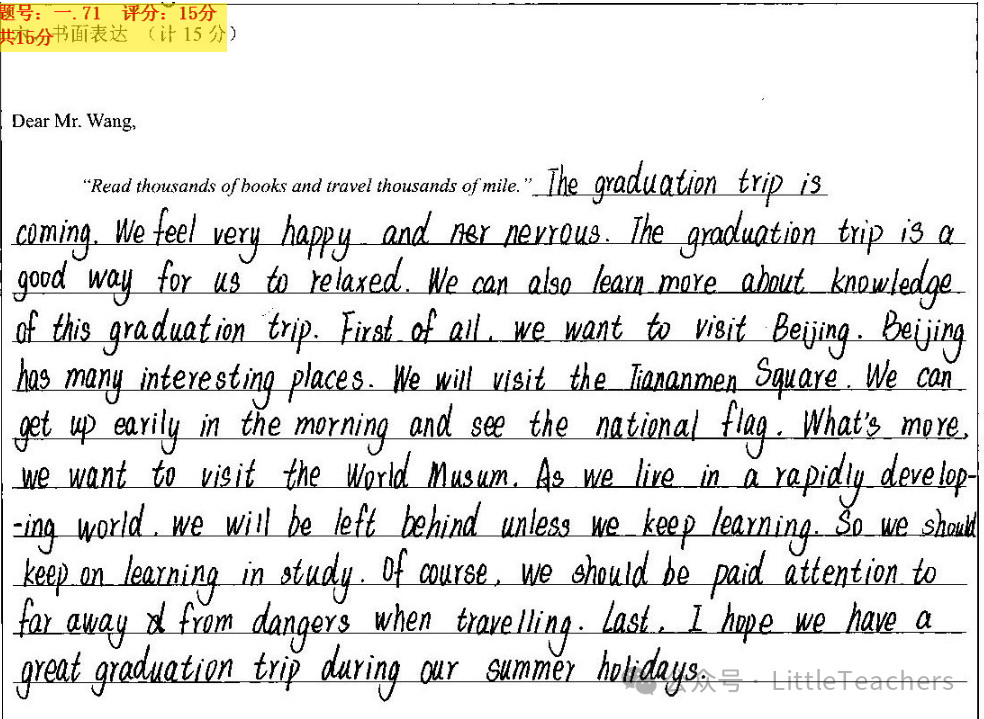 题号：一.71 评分：15分
共15分 书面表达 （计 15 分）
Dear Mr. Wang,
“Read thousands of books and travel thousands of mile.” The graduation trip is
coming. We feel very happy and ner nevrous. The graduation trip is a
good way for us to relaxed. We can also learn more about knowledge
of this graduation trip. First of all, we want to visit Beijing. Beijing
has many interesting places. We will visit the Tiananmen Square. We can
get up earily in the morning and see the national flag. What's more,
we want to visit the World Musum. As we live in a rapidly develop-
-ing world, we will be left behind unless we keep learning. So we should
keep on learning in study. Of course, we should be paid attention to
far away from dangers when travelling. Last, I hope we have a
great graduation trip during our summer holidays.
公众号 · LittleTeachers